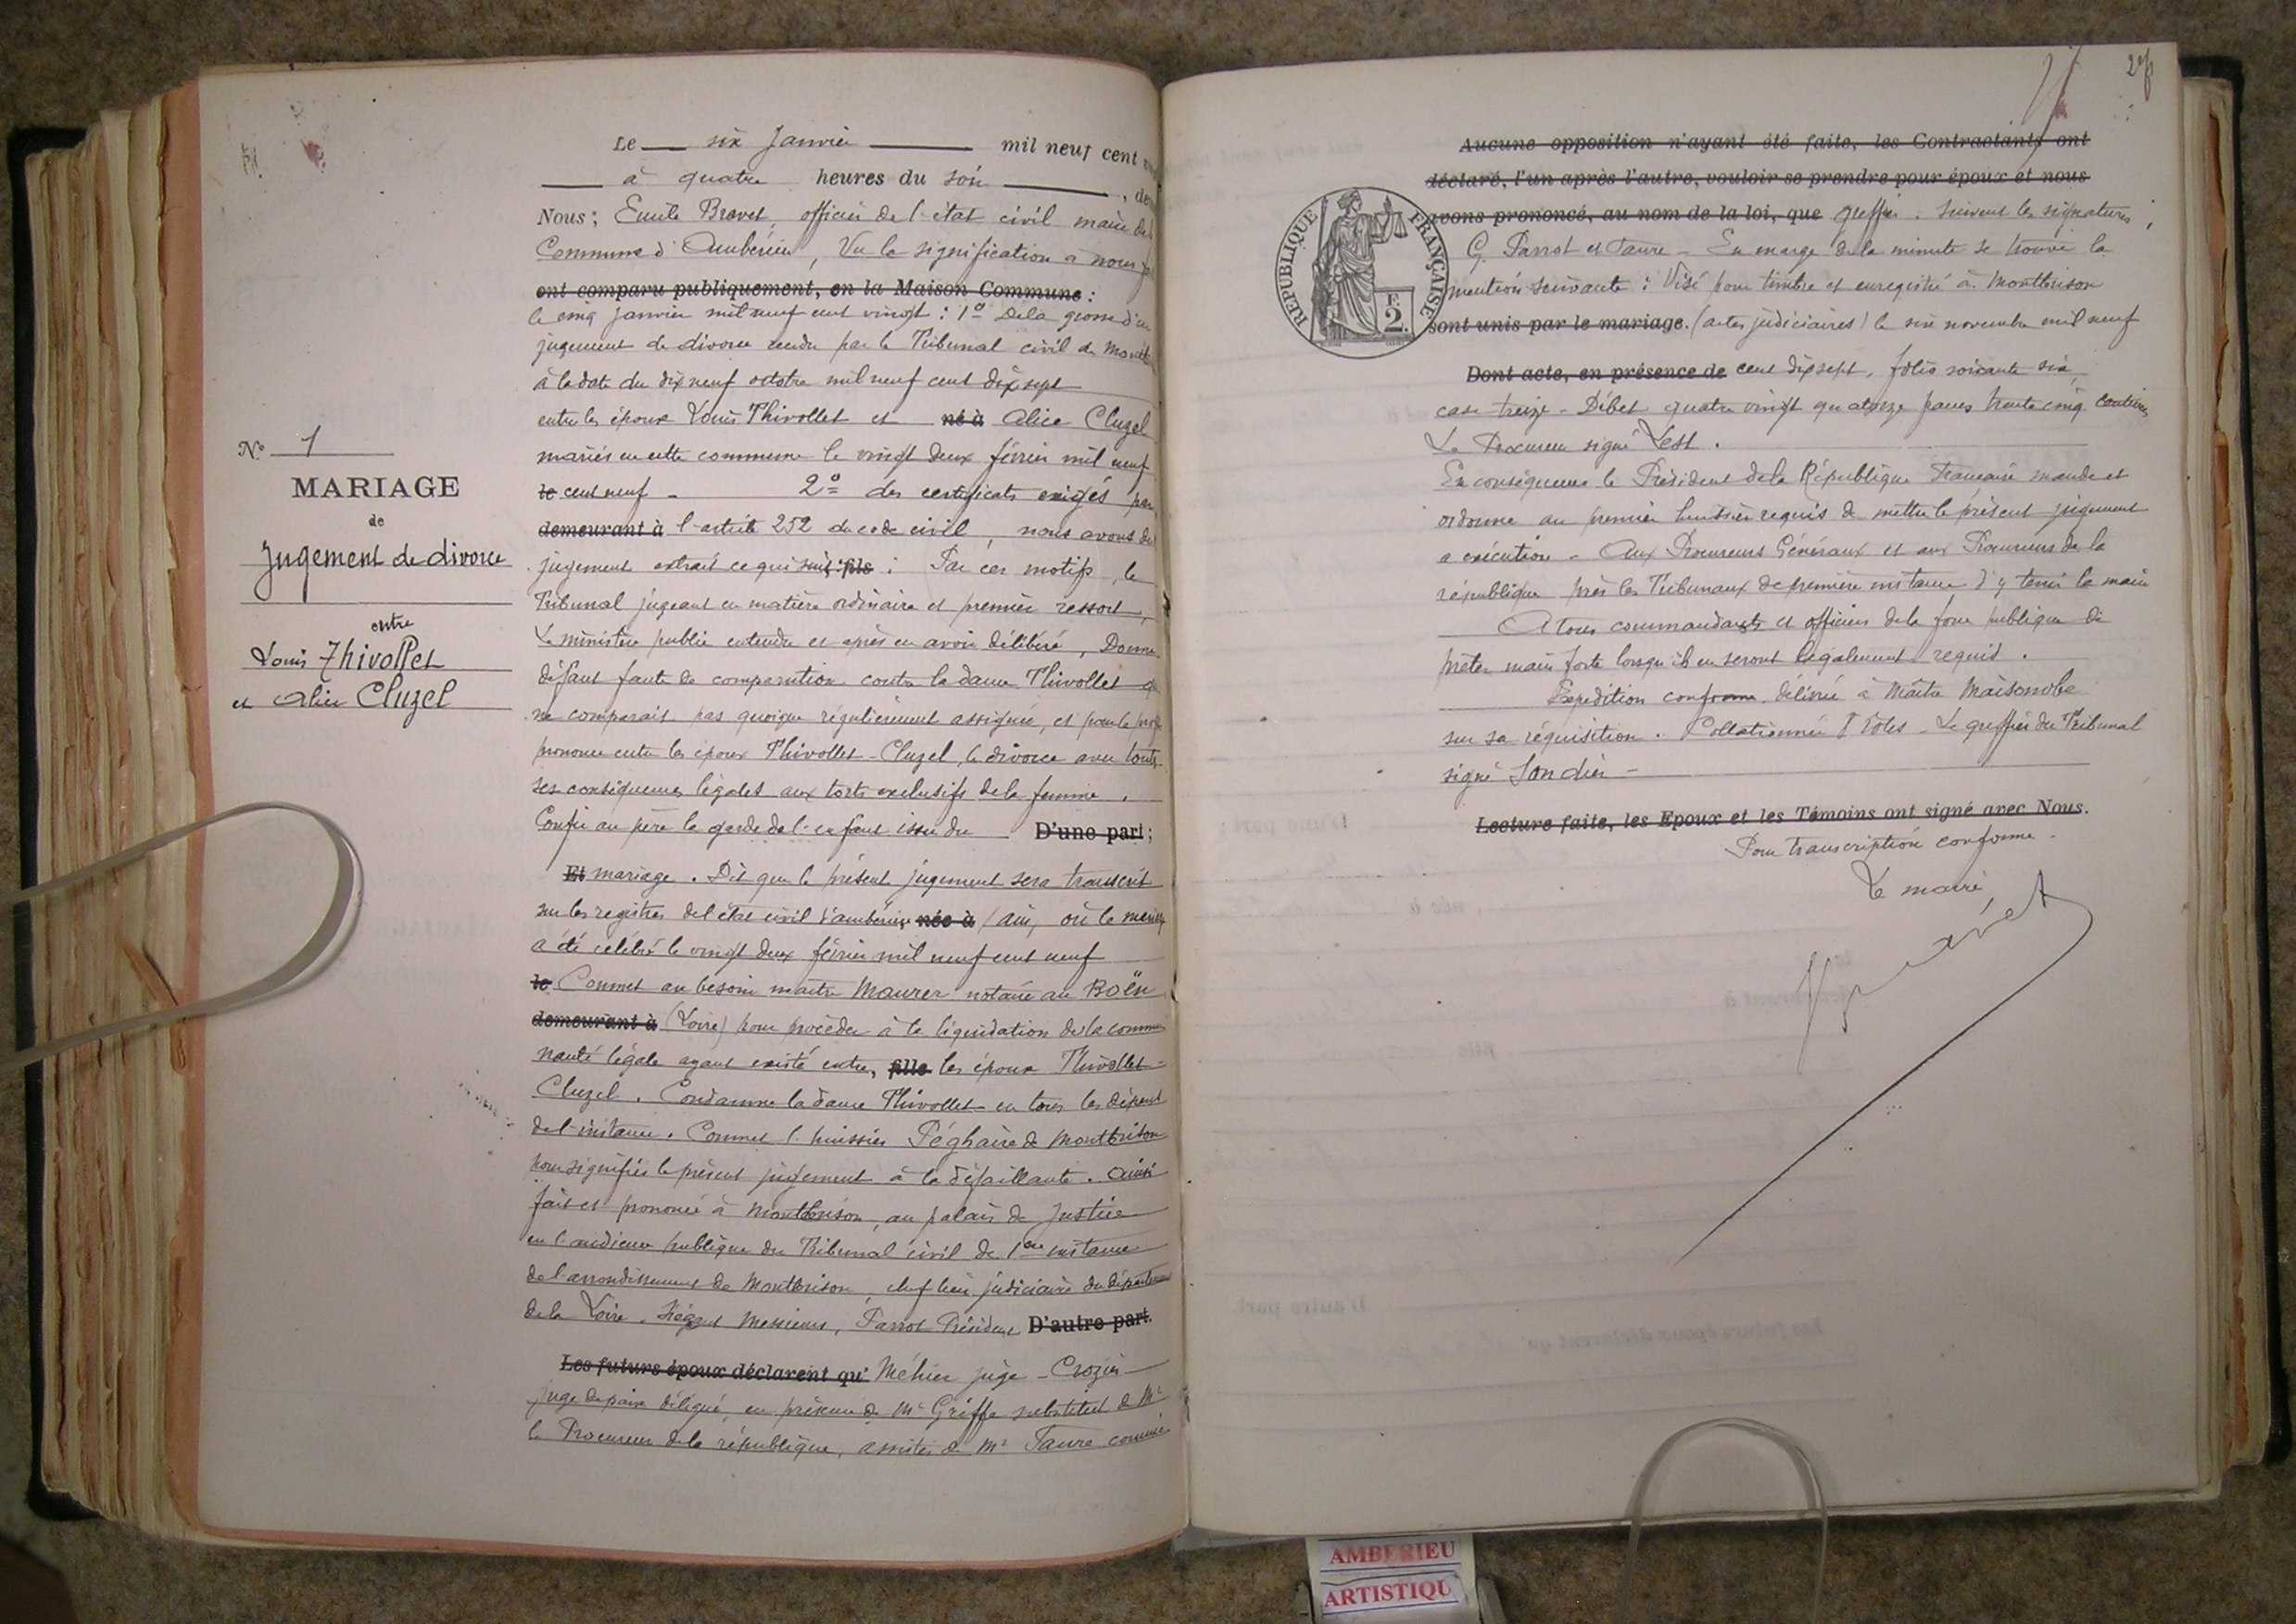 Le six Janvier mil neuf cent
à quatre heures du soir
Nous ; Emile Bravet, officier de l'état civil maire de
Commune d'Ambérieu, Vu la signification à nous
ont comparu publiquement, en la Maison Commune :
le cinq janvier mil neuf cent vingt : 1º De la grosse d'un
jugement de divorce rendu par le Tribunal civil de
à la date du dix neuf octobre mil neuf cent dix sept
entre les époux Louis Thivollet et né à Alice Cluzel
mariés en cette commune le vingt deux février mil neuf
le cent neuf - 2º des certificats exigés par
demeurant à l'article 252 du code civil, nous avons
jugement extrait ce qui suit : fils : Par ces motifs, le
Tribunal jugeant en matière ordinaire et premier ressort,
Le ministère public entendu et après en avoir délibéré, Donne
défaut faute de comparution contre la dame Thivollet
ne comparait pas quoique régulièrement assignée, et pour le
prononce entre les époux Thivollet - Cluzel, le divorce avec
ses conséquences légales aux torts exclusifs de la femme.
Confie au père la garde de l'enfant issu du D'une part ;
Et mariage. Dit que le présent jugement sera transcrit
sur les registres de l'état civil d'Ambérieu, née à (ain) où le
a été célébré le vingt deux février mil neuf cent neuf
le Commet au besoin maître Maurer notaire au Boën
demeurant à (Loire) pour procéder à la liquidation de la commu
nauté légale ayant existé entre, fille les époux Thivollet -
Cluzel. Condamne la dame Thivollet en tous les dépens
de l'instance. Commet l'huissier Péghaire de Montbrison
pour signifier le présent jugement à la défaillante. Ainsi
fait et prononcé à Montbrison, au palais de Justice
en l'audience publique du Tribunal civil de 1ere instance
de l'arrondissement de Montbrison, chef lieu judiciaire du département
de la Loire. Siégeant Messieurs, Parrot Président D'autre part.
Les futurs époux déclarent qu' Méhier juge - Crozier
juge de paix délégué, en présence de Mr Griffe substitut de Mr
le Procureur de la république, assistés de Mr Faure commis
Nº 1
MARIAGE
de
Jugement de divorce
entre
Louis Thivollet
et Alice Cluzel
Aucune opposition n'ayant été faite, les Contractants ont
déclaré, l'un après l'autre, vouloir se prendre pour époux et nous
avons prononcé, au nom de la loi, que greffier. Suivent les signatures ;
G. Parrot et Faure - En marge de la minute se trouve la
mention suivante : Visé pour timbre et enregistré à Montbrison
sont unis par le mariage. (actes judiciaires) le six novembre mil neuf
Dont acte, en présence de cent dix sept, folio soixante six,
case treize - Débet quatre vingt quatorze francs trente cinq centimes
Le Procureur signé Lest.
En conséquence le Président de la République Française mande et
ordonne au premier huissier requis de mettre le présent jugement
a exécution - Aux Procureurs Généraux et aux Procureurs de la
république près les Tribunaux de première instance d'y tenir la main
A tous commandants et officiers de la force publique de
prêter main forte lorsqu'ils en seront légalement requis.
Expédition conforme délivrée à Maître Maisonobe
sur sa réquisition. Collationnée rôles - Le greffier du Tribunal
signé
Lecture faite, les Epoux et les Témoins ont signé avec Nous.
Pour transcription conforme -
Le maire,
Bravet
RÉPUBLIQUE FRANÇAISE
F.
2.
AMBERIEU
ARTISTIQU